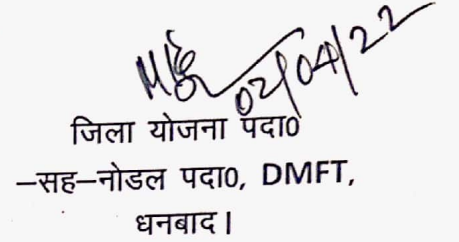 02/04/22
जिला योजना पदा0
-सह-नोडल पदा0, DMFT,
धनबाद।